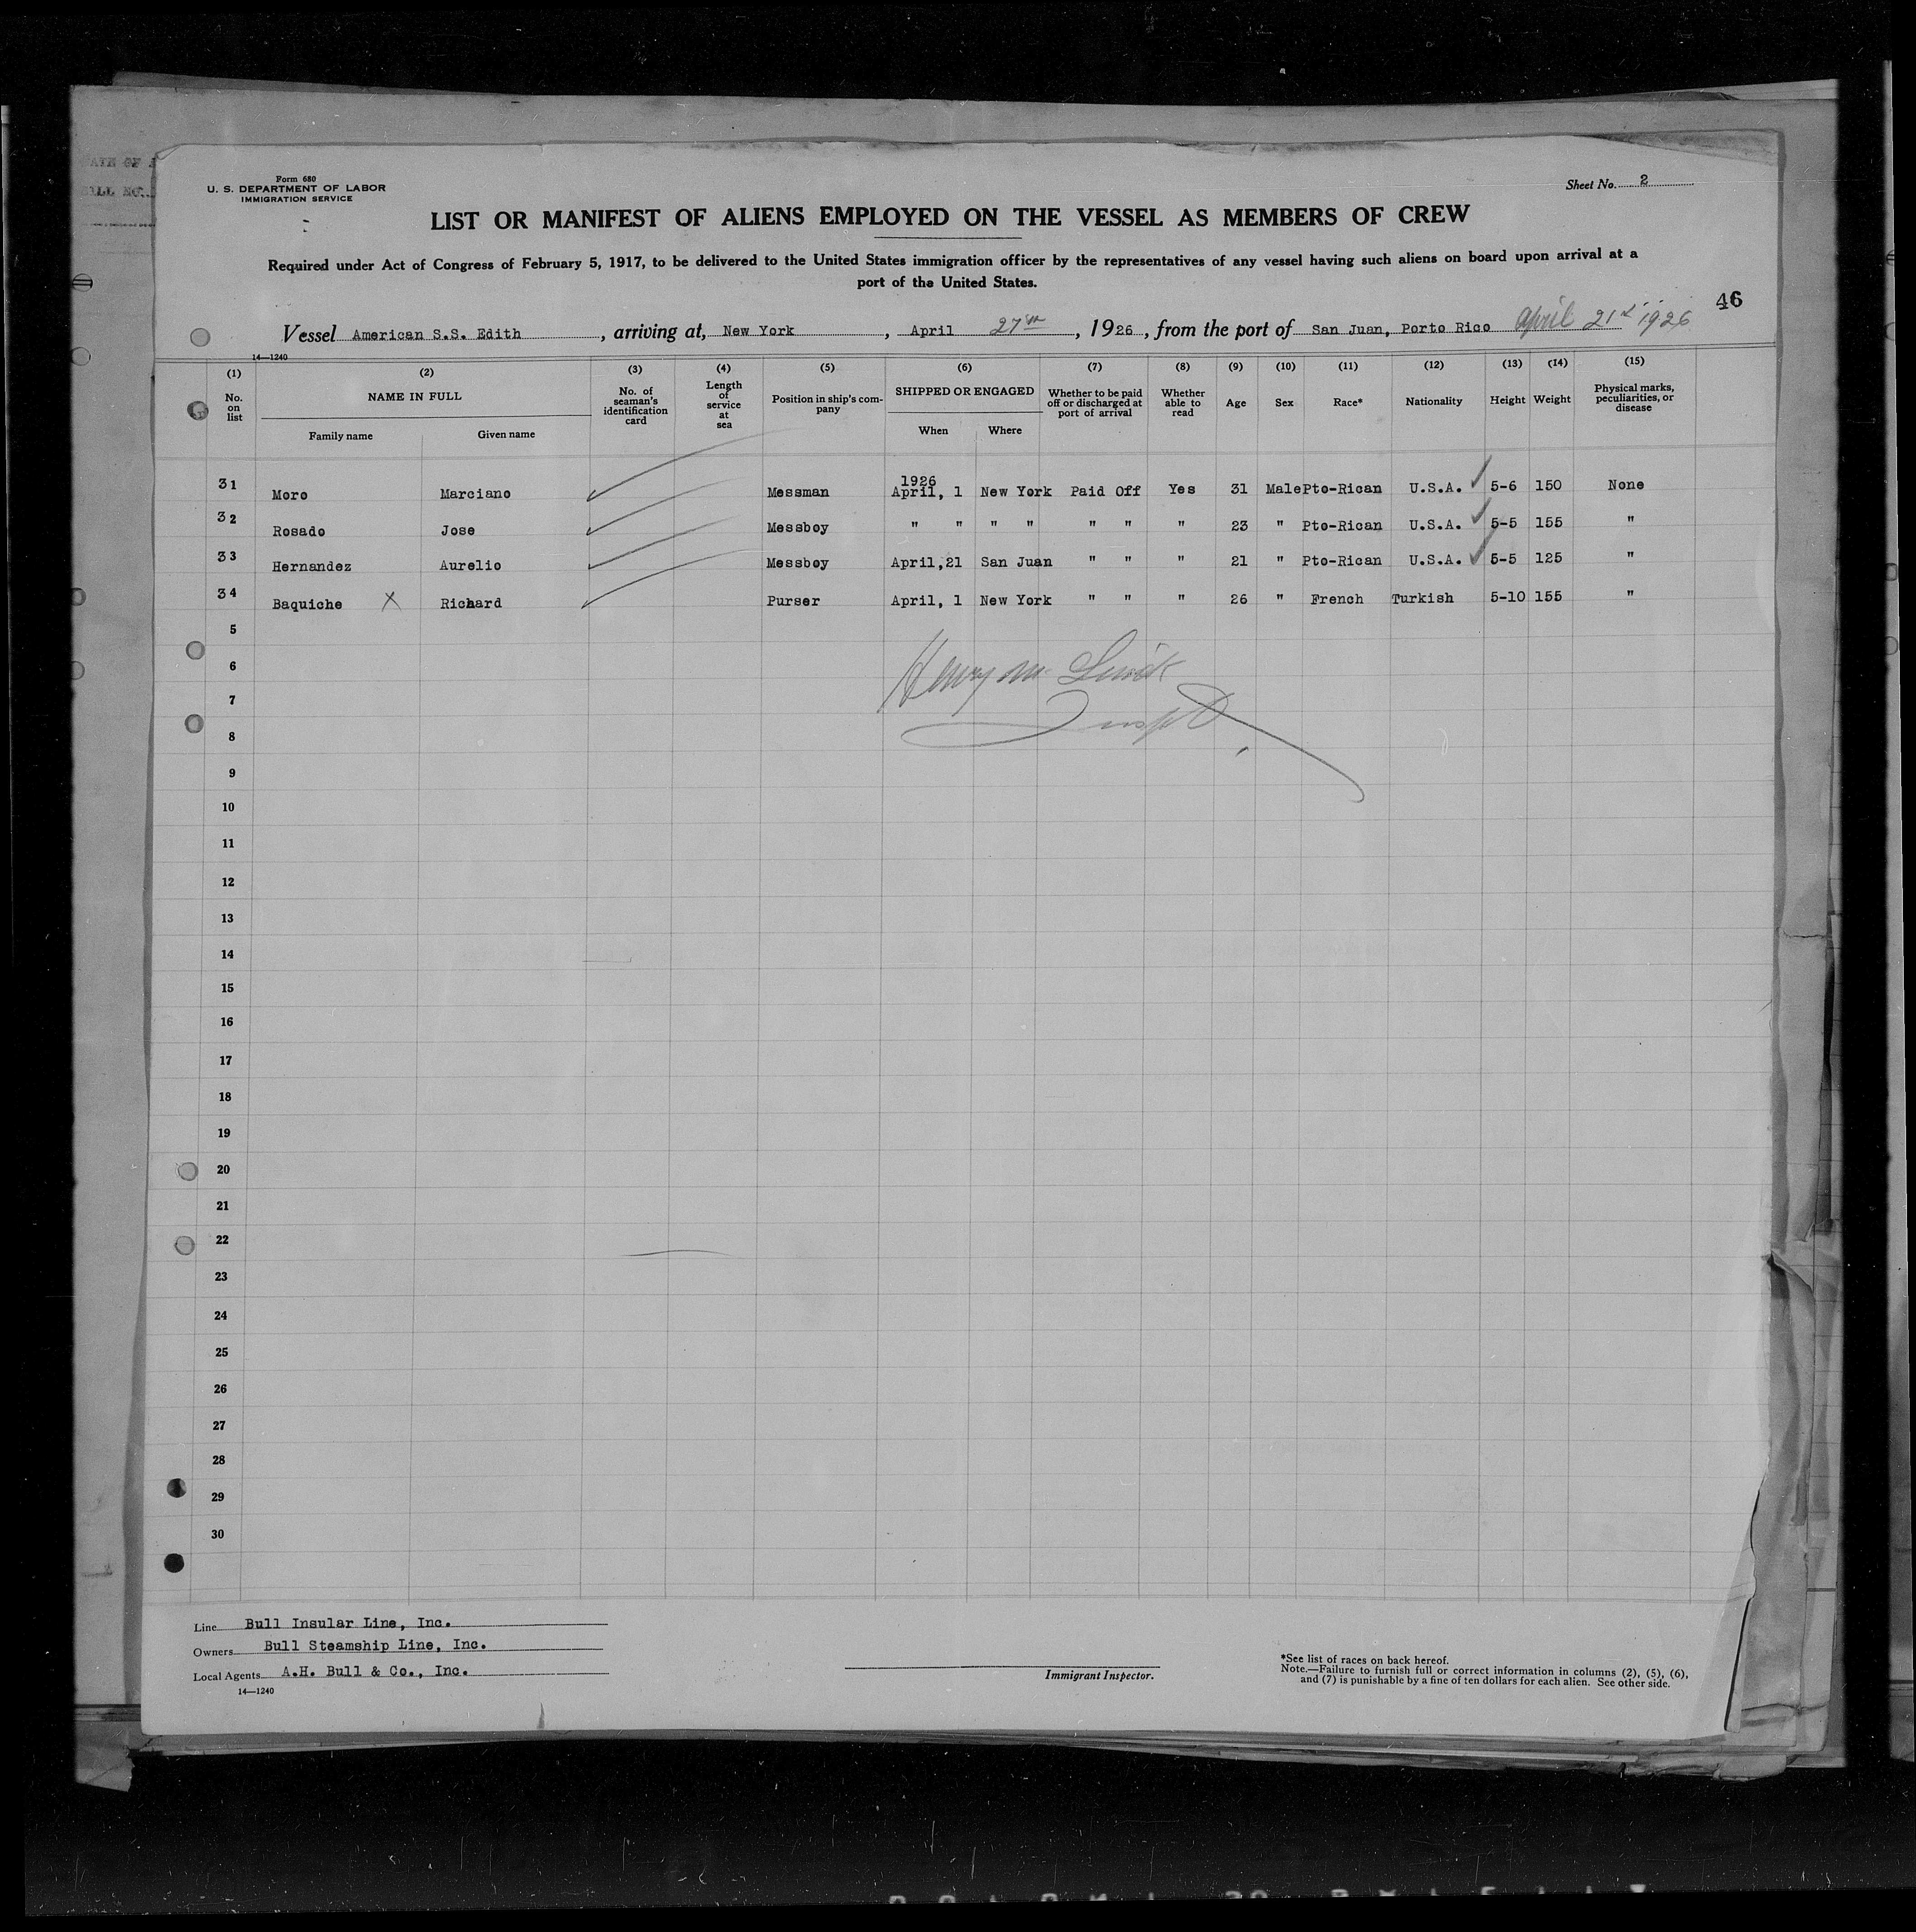 Form 680
U. S. DEPARTMENT OF LABOR
IMMIGRATION SERVICE
Sheet No. 2
LIST OR MANIFEST OF ALIENS EMPLOYED ON THE VESSEL AS MEMBERS OF CREW
Required under Act of Congress of February 5, 1917, to be delivered to the United States immigration officer by the representatives of any vessel having such aliens on board upon arrival at a
port of the United States.
46
Vessel American S.S. Edith, arriving at, New York, April 27th, 1926, from the port of San Juan, Porto Rico April 21st 1926
14—1240
(1) (2) (3) (4) (5) (6) (7) (8) (9) (10) (11) (12) (13) (14) (15)
No. on list NAME IN FULL Family name Given name No. of seaman's identification card Length of service at sea Position in ship's company SHIPPED OR ENGAGED When Where Whether to be paid off or discharged at port of arrival Whether able to read Age Sex Race* Nationality Height Weight Physical marks, peculiarities, or disease
1926
31 Moro Marciano Messman April, 1 New York Paid Off Yes 31 Male Pto-Rican U.S.A. 5-6 150 None
32 Rosado Jose Messboy " " " " " " " 23 " Pto-Rican U.S.A. 5-5 155 "
33 Hernandez Aurelio Messboy April,21 San Juan " " " 21 " Pto-Rican U.S.A. 5-5 125 "
34 Baquiche X Richard Purser April, 1 New York " " " 26 " French Turkish 5-10 155 "
5
6
Henry M.
7
8
9
10
11
12
13
14
15
16
17
18
19
20
21
22
23
24
25
26
27
28
29
30
Line Bull Insular Line, Inc.
Owners Bull Steamship Line, Inc.
Local Agents A.H. Bull & Co., Inc.
14—1240
Immigrant Inspector.
*See list of races on back hereof.
Note.—Failure to furnish full or correct information in columns (2), (5), (6),
and (7) is punishable by a fine of ten dollars for each alien. See other side.